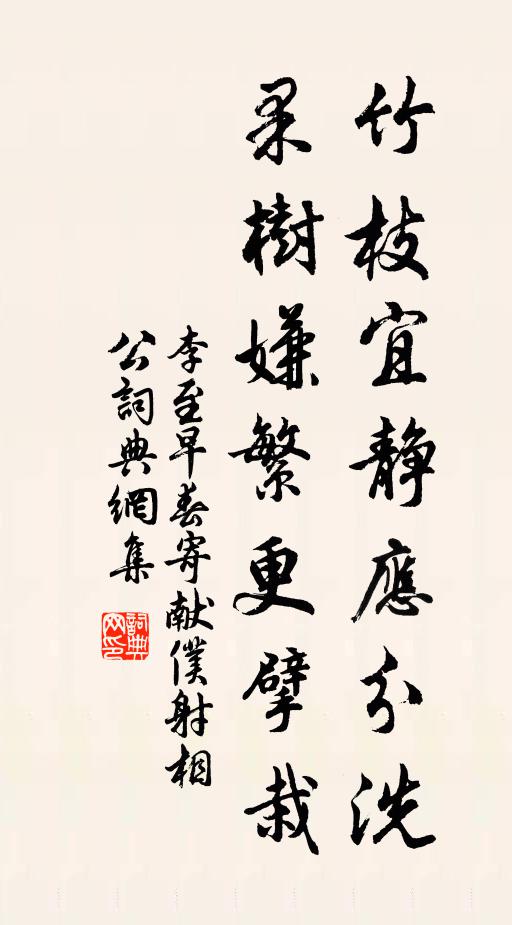 竹枝宜静應分洗
果樹嫌繁更擘栽
李至早春寄献僕射相
公詞典網集
詞典网印